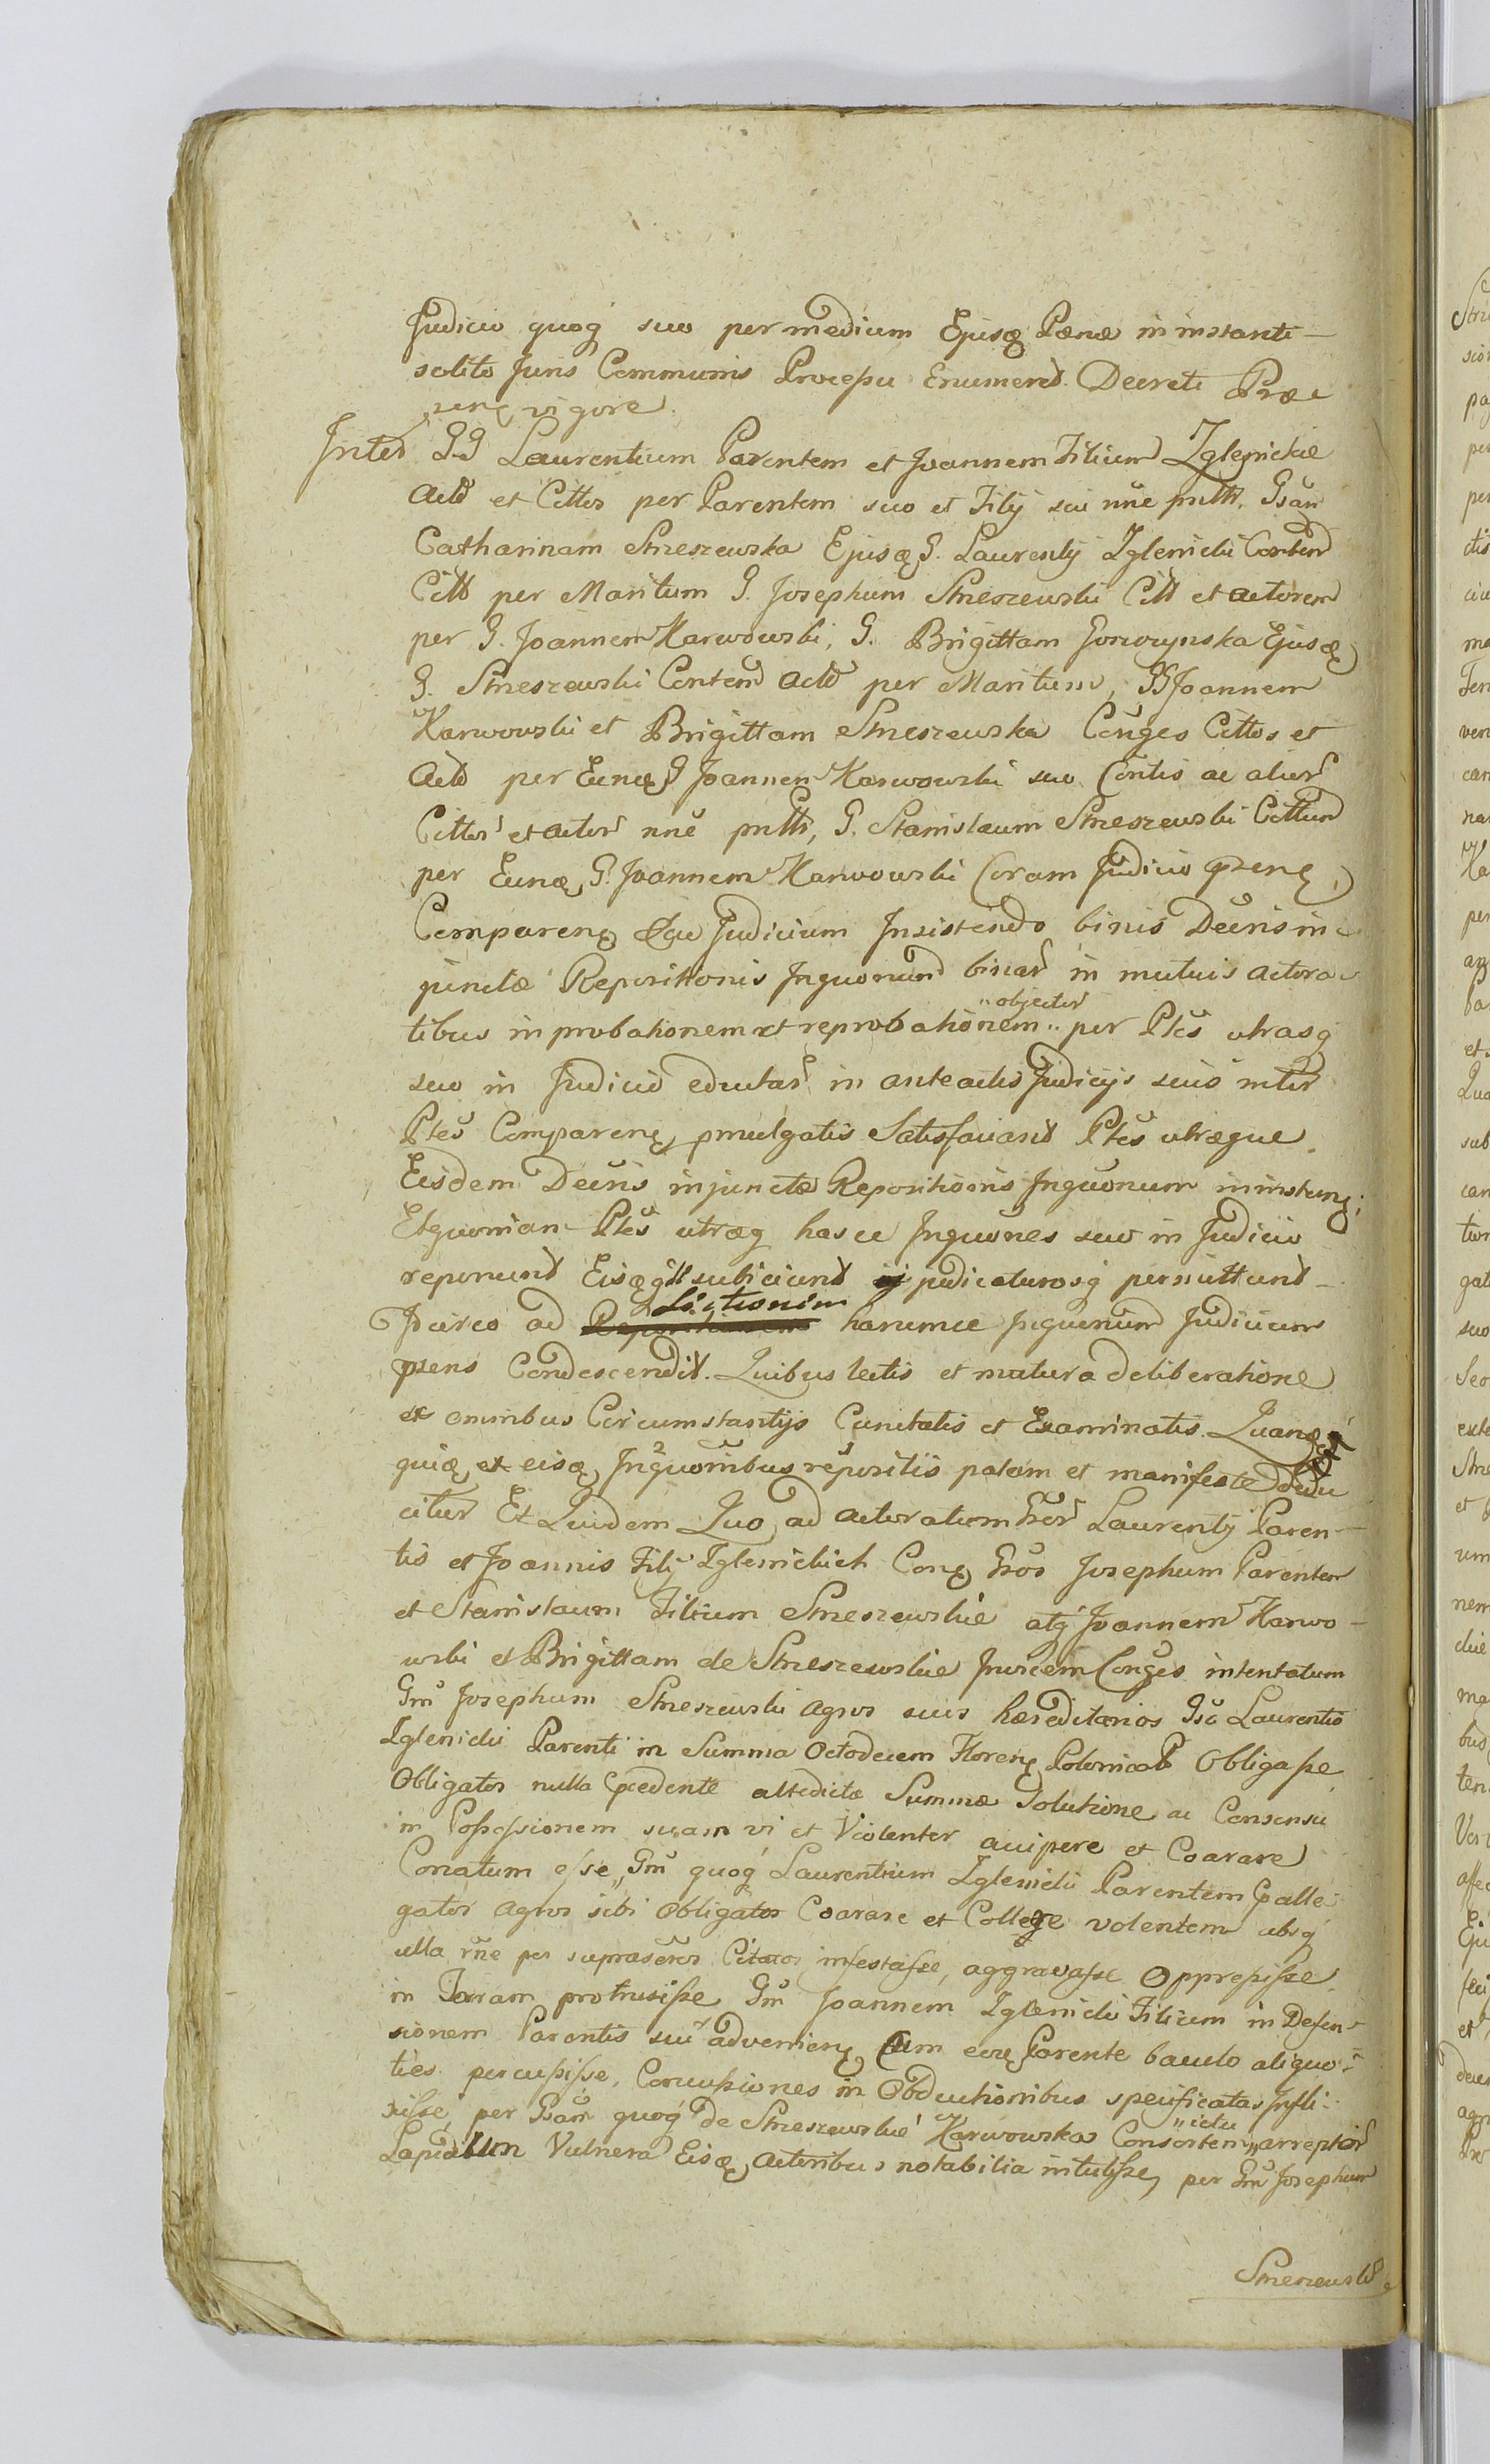 Judicio quoq suo per medium Ejusq Pœnæ in instanti
solito Juris Communis Processu Enumerd. Decreti Præ
senq vigore.
Inter GG Laurentium Parentem et Joannem Filium Iglenickie
Actd et Cittos per Parentem suo et Filij sui nñe pntth. Gsam
Catharinam Smeszewska Ejusq G. Laurentij Iglenicki Contem
Citt per Maritum G. Josephum Smeszewski Citt et actorem
per G. Joannem Karwowski, G. Brigittam Goworynska Ejusq
G. Smeszewski Contem Actd per Maritum, GG Joannem
Karwowski et Brigittam Smeszewska Conges Cittos et
Actd per Eunq G Joannem Karwowski suo Contis ac alior
Cittor et actor nñe pntth, G. Stanislaum Smeszewski Cittum
per Eunq, G. Joannem Karwowski Coram Judicio pzenq,
Comparenq Judicium Insistendo binis Decris in
junctæ Repositionis Inquonum binar in mutuis actora
tibus in probationem et reprobationem " objectis " per Ptes utrasq
suo in Judicio eductar in anteactis Judicijs suis inter
Ptes Comparenq pmulgatis Satisfaciant Ptes utræque
Eisdem Decris injunctæ Repositionis Inquonum ininstenq;
Etquoniam Ptes utræq hasce Inquones suo in Judicio
reponunt Eisqq subiciunt judicaturosq permittunt
Idcirco ad Lectionem harumce Inquonum Judicium
pzens Condescendit. Quibus lectis et matura deliberatione
ex omnibus Circumstantijs Cunctatis et Examinatis. Quanq
quiq ex eisq Inquonibus repositiis palam et manifeste dedu
citur Et Quidem Quo ad actoratum Gsor Laurentij Paren
tis et Joannis Filij Iglenickich Conq Gsos Josephum Parentem
et Stanislaum Filium Smeszewskie atq Joannem Karwo
wski et Brigittam de Smeszewskie Invicem Conges intentatum
Gm Josephum Smeszewski agros suos hæreditarios Gso Laurentio
Iglenicki Parenti in Summa Octodecem Florenq Polonical Obligasse
Obligatos nulla pcedente altedictæ Summæ Solutione ac Consensu
in Possessionem suam vi et Violenter accipere et Coarare
Conatum esse, Gm quoq Laurentium Iglenicki Parentem palle
gatos agros sibi Obligatos Coarare et College volentem absq
ulla rne per suprascros Citatos infestasse, aggravasse Oppressisse
in Terram protrusisse Gm Joannem Iglenicki Filium in Defen
sionem Parentis sui advenienq Cum eoq Parente baculo aliquo
ties percussisse, Concussiones in Obductionibus specificatas Infli
xisse, per Gsam quoq de Smeszewskie Karwowska Consortem " ictu " arreptor
Lapidum Vulnera Eisq, Actoribus notabilia intulisse, per Gm Josephum
Smeszewski